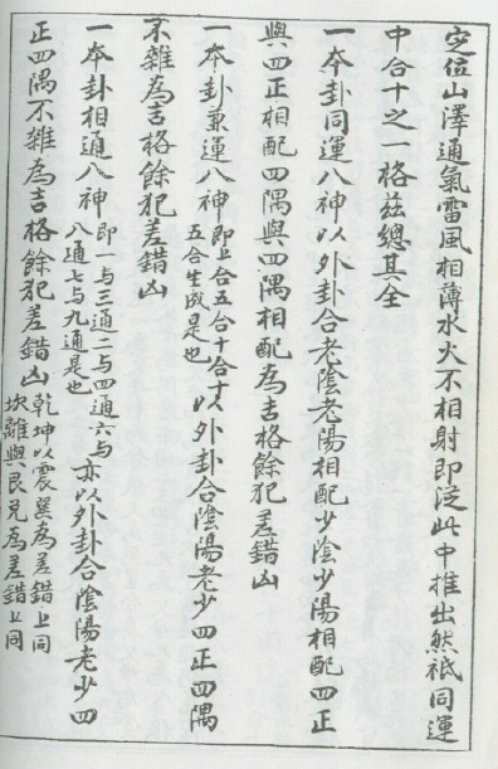 定位山澤通氣雷風相薄水火不相射即從此中推出然祗同運
中合十之一格茲總其全
一本卦同運八神以外卦合老陰老陽相配少陰少陽相配四正
與四正相配四隅與四隅相配為吉格餘犯差錯凶
一本卦兼運八神即上合五合十合十五合生成是也以外卦合陰陽老少四正四隅
不雜為吉格餘犯差錯凶
一本卦相通八神即一与三通二与四通六与八通七与九通是也亦以外卦合陰陽老少四
正四隅不雜為吉格餘犯差錯凶乾坤以震巽為差錯上同坎離與艮兌為差錯上同